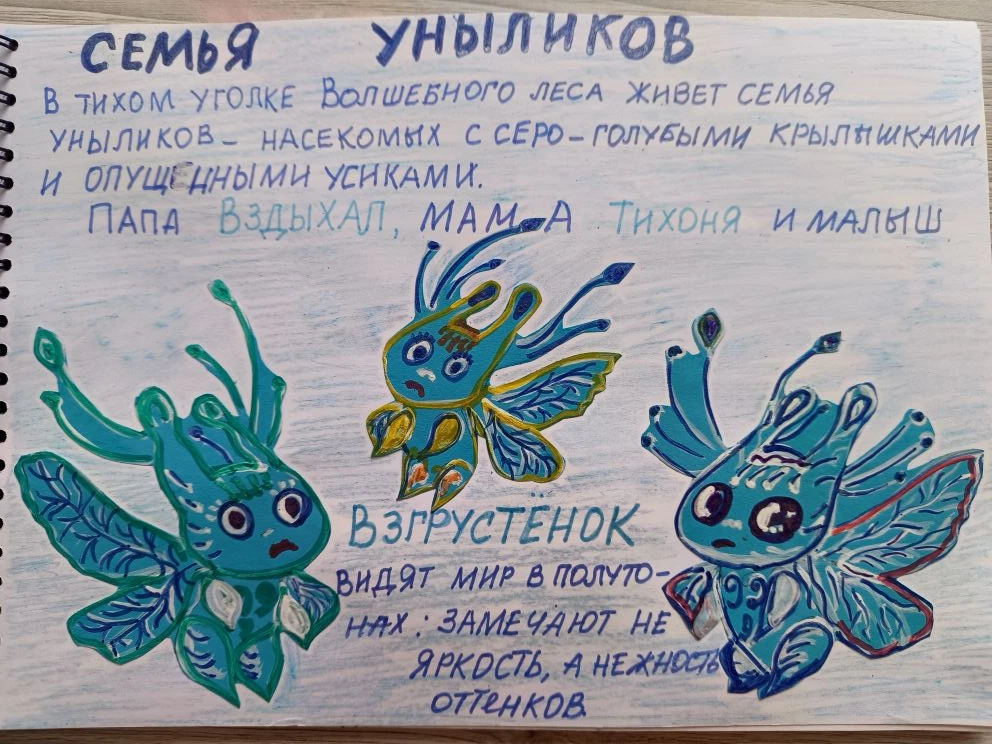 СЕМЬЯ УНЫЛИКОВ
В ТИХОМ УГОЛКЕ ВОЛШЕБНОГО ЛЕСА ЖИВЕТ СЕМЬЯ
УНЫЛИКОВ – НАСЕКОМЫХ С СЕРО-ГОЛУБЫМИ КРЫЛЫШКАМИ
И ОПУЩЕННЫМИ УСИКАМИ.
ПАПА ВЗДЫХАЛ, МАМА ТИХОНЯ И МАЛЫШ
ВЗГРУСТЁНОК
ВИДЯТ МИР В ПОЛУТО-
НАХ: ЗАМЕЧАЮТ НЕ
ЯРКОСТЬ, А НЕЖНОСТЬ
ОТТЕНКОВ.